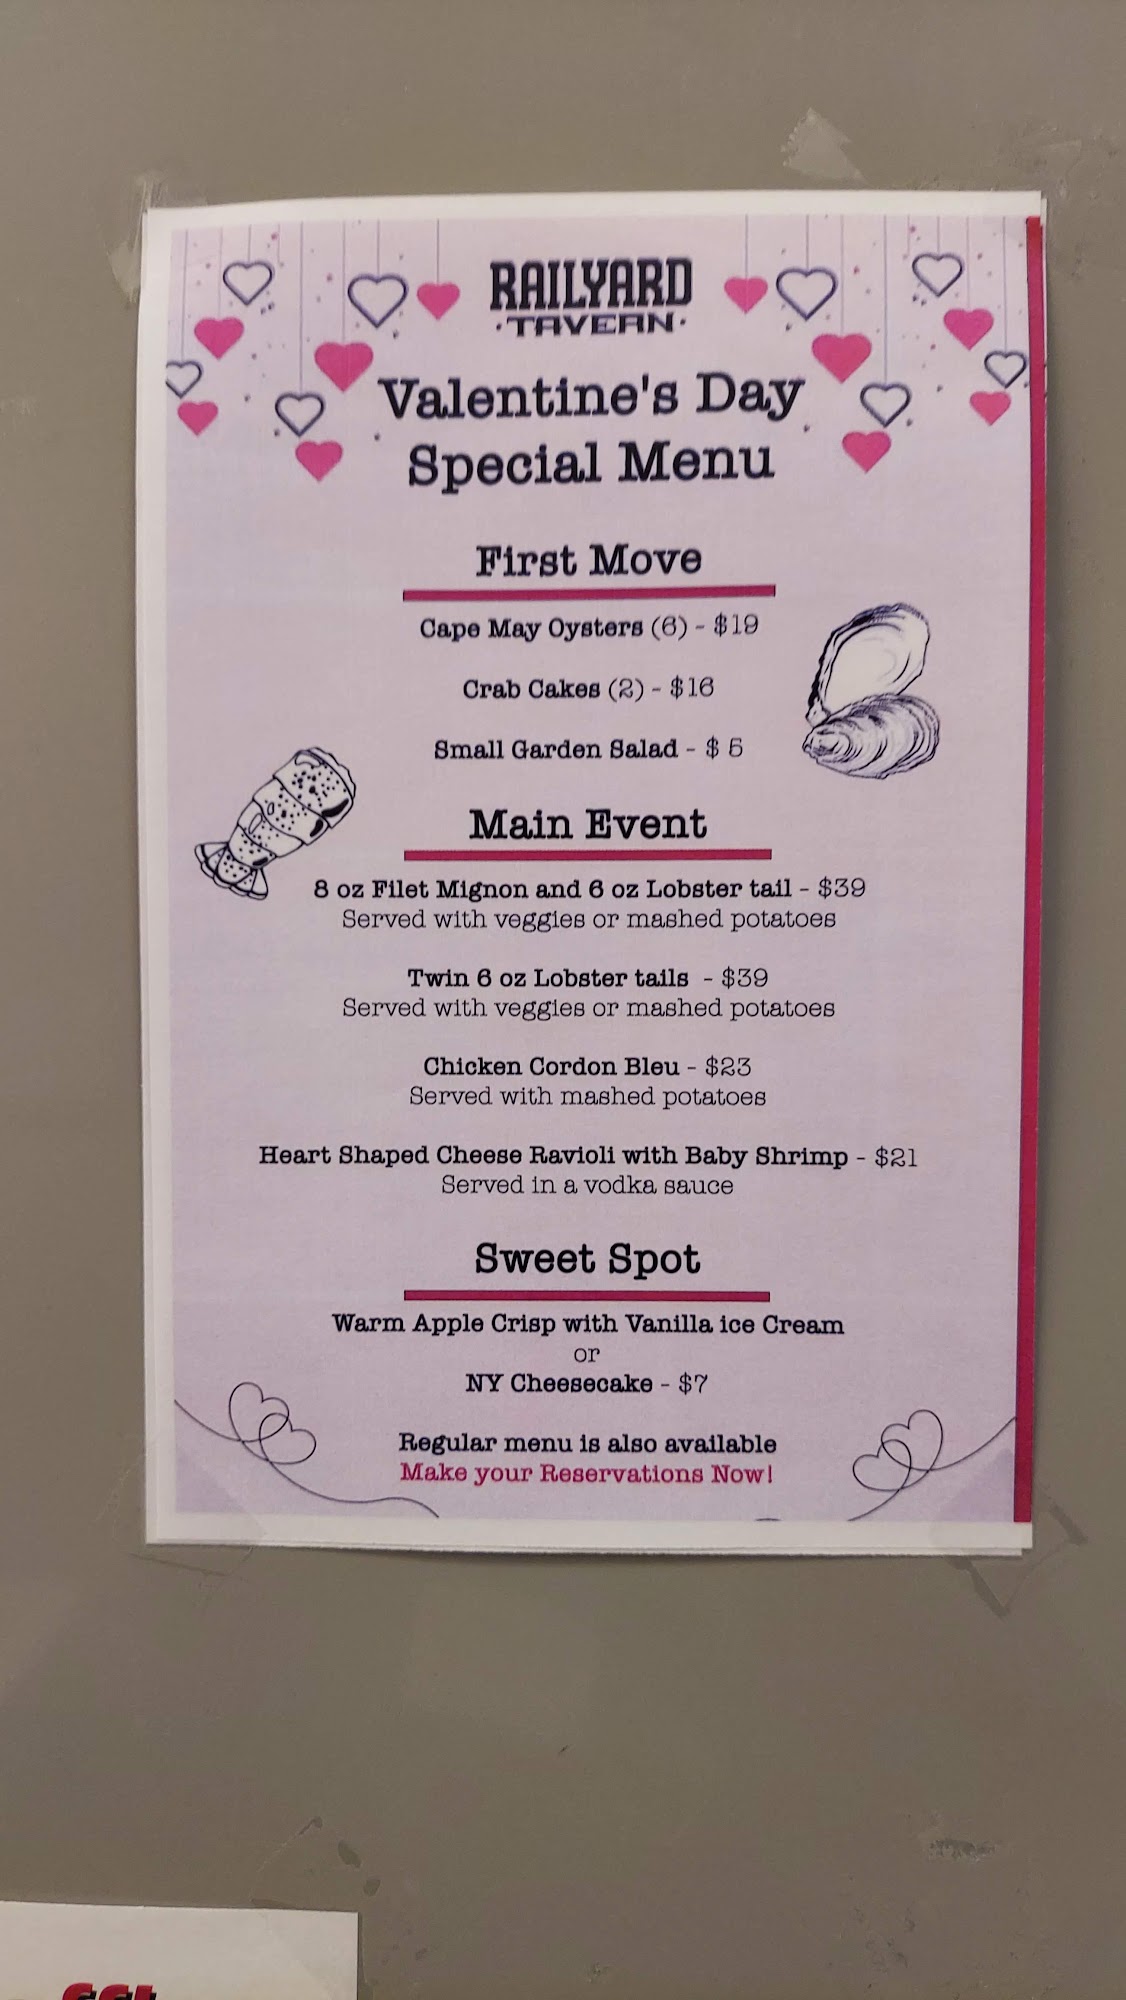 RAILYARD
·TAVERN·
Valentine's Day
Special Menu
First Move
Cape May Oysters (6) - $19
Crab Cakes (2) - $16
Small Garden Salad - $ 5
Main Event
8 oz Filet Mignon and 6 oz Lobster tail - $39
Served with veggies or mashed potatoes
Twin 6 oz Lobster tails - $39
Served with veggies or mashed potatoes
Chicken Cordon Bleu - $23
Served with mashed potatoes
Heart Shaped Cheese Ravioli with Baby Shrimp - $21
Served in a vodka sauce
Sweet Spot
Warm Apple Crisp with Vanilla ice Cream
or
NY Cheesecake - $7
Regular menu is also available
Make your Reservations Now!